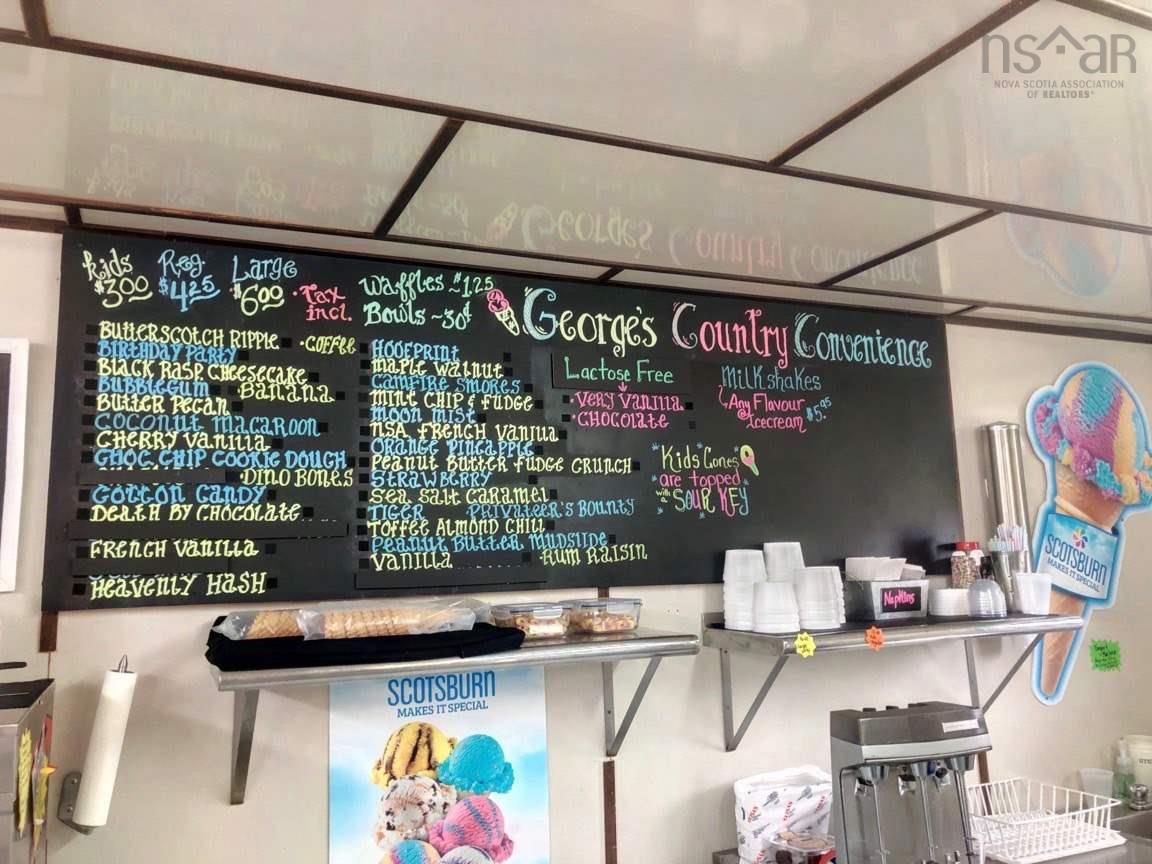 nsaar
NOVA SCOTIA ASSOCIATION
OF REALTORS®
Kids Reg. Large
$3.00 $4.25 $6.00 ·Tax
incl.
Waffles ~$1.25
Bowls ~ 30¢
George's Country Convenience
Butterscotch Ripple ·Coffee
Birthday Party
Black Rasp. Cheesecake
Bubblegum Banana
Butter Pecan
Coconut Macaroon
Cherry Vanilla
Choc. Chip Cookie Dough
·Dino Bones
Cotton Candy
Death By Chocolate
French Vanilla
Heavenly Hash
Hoofprint
Maple Walnut
Campfire Smores
Mint Chip & Fudge
Moon Mist
NSA French Vanilla
Orange Pineapple
Peanut Butter Fudge Crunch
Strawberry
Sea Salt Caramel
Tiger Privateer's Bounty
Toffee Almond Chill
Peanut Butter Mudslide
Vanilla ·Rum Raisin
Lactose Free
·Very Vanilla
·Chocolate
Milkshakes
Any Flavour
Icecream $5.95
Kids Cones
are topped
with a Sour Key
Napkins
SCOTSBURN
MAKES IT SPECIAL
SCOTSBURN
MAKES IT SPECIAL